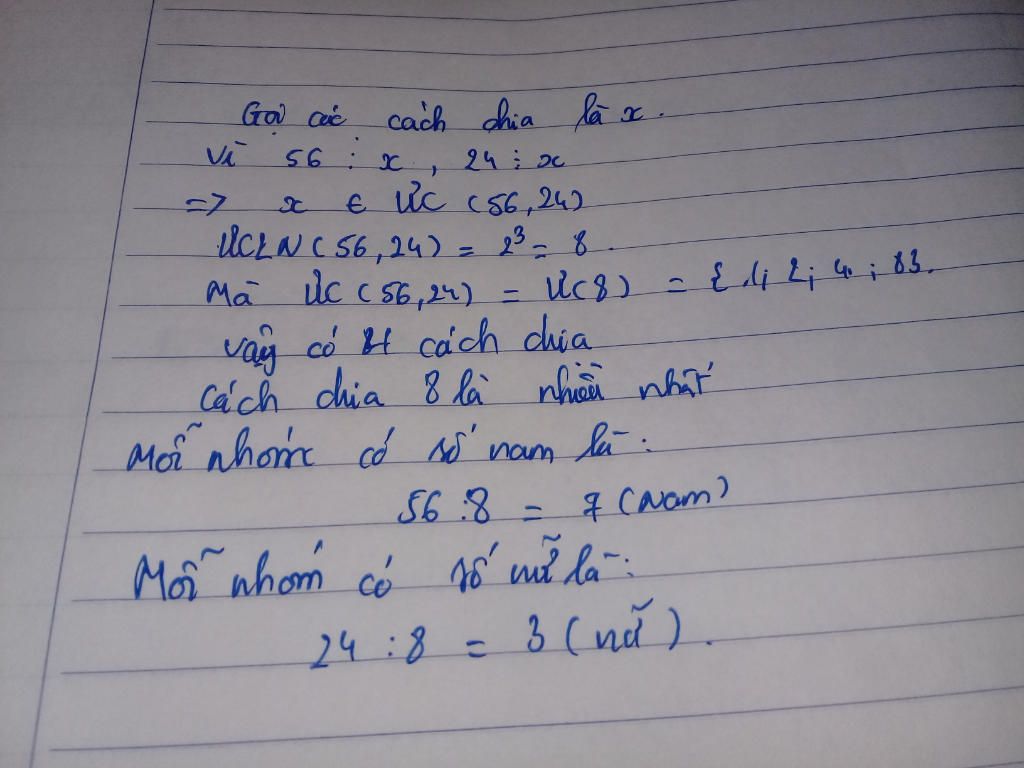 Gọi các cách chia là x.
Vì 56 ⋮ x, 24 ⋮ x
=> x ∈ ƯC (56,24)
ƯCLN (56,24) = 2³ = 8.
Mà ƯC (56,24) = Ư(8) = {1; 2; 4; 8}.
Vậy có 4 cách chia
Cách chia 8 là nhiều nhất
Mỗi nhóm có số nam là:
56 : 8 = 7 (Nam)
Mỗi nhóm có số nữ là:
24 : 8 = 3 (nữ).